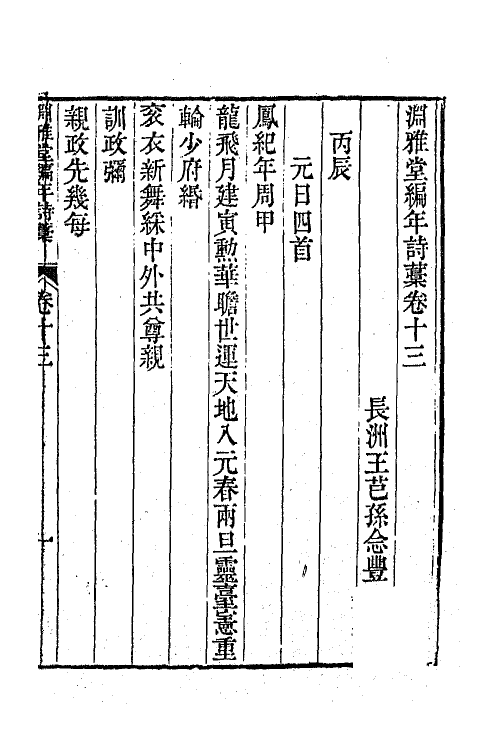 淵雅堂編年詩藁卷十三
長洲王芑孫念豐
丙辰
元日四首
鳳紀年周甲
龍飛月建寅勲華瞻世運天地入元春兩旦靈臺憲重
輪少府緡
袞衣新舞綵中外共尊親
訓政彌
親政先幾每
淵雅堂編年詩藁
卷十三
一